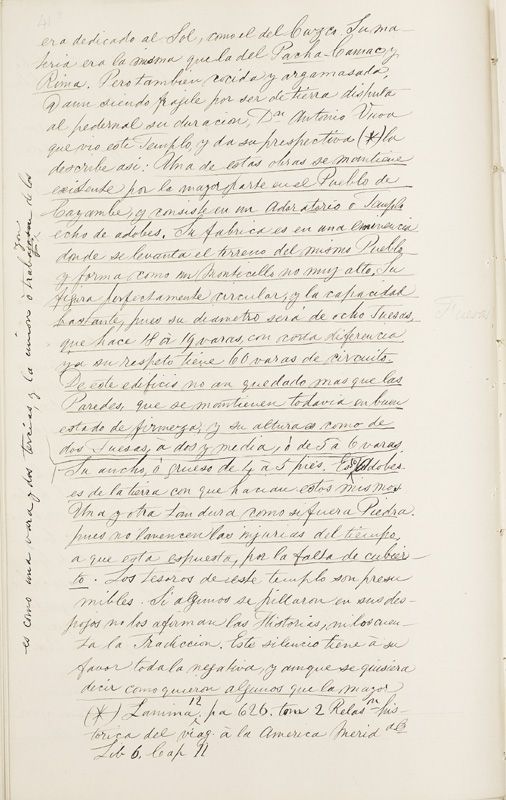 era dedicado al Sol, como el del Cuzco, Su ma-
teria era la misma que la del Pacha-Camac y
Rima. Pero tambien cocida y argamasada,
q aun siendo frajile por ser de tierra disputa
al pedernal su duracion, Dn Antonio Uuoa
que vio este Templo, y da su prespectiva (*) la
describe asi: Una de estas obras se mantiene
existente por la mayor parte en el Pueblo de
Cayambe, y consiste en un Adoratorio ó Templo
echo de adobes. Su fabrica es en una eminencia
donde se levanta el terreno del mismo Pueblo,
y forma como un Monticello no muy alto. Su
figura perfectamente circular, y la capacidad
bastante, pues su diametro sera de ocho Tuesas,
que hace 18 á 19 varas, con corta diferencia
y a su respeto tiene 60 varas de circuito.
De este edificio no an quedado mas que las
Paredes, que se mantienen todavia en buen
estado de firmeza, y su altura es como de
dos Tuesas, à dos y media, ó de 5 à 6 varas
Su ancho, ó grueso de 4 à 5 piés. Los Adobes
es de la tierra con que hacian estos mismos
Una y otra tan dura como si fuera Piedra,
pues no la vencen las injurias del tiempo,
a que esta espuesta, por la falta de cubier-
to. Los tesoros de este templo son presu
mibles. Si algunos se pillaron en sus des-
pojos no los afirman las Historias, ni los cuen-
ta la Tradiccion. Este silencio tiene à su
favor toda la negativa, y aunque se quisiera
decir como quieren algunos que la mayor
(*) Lamina 12, pa 626. tom 2 Relason His-
torica del viag. à la America Merid
Lib 6. Cap 11
es como una vara y dos tercias y la union ó trabazon de los
Tuesas